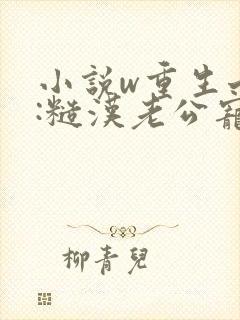 小説w重生
:糙漢老公寵
柳青兒